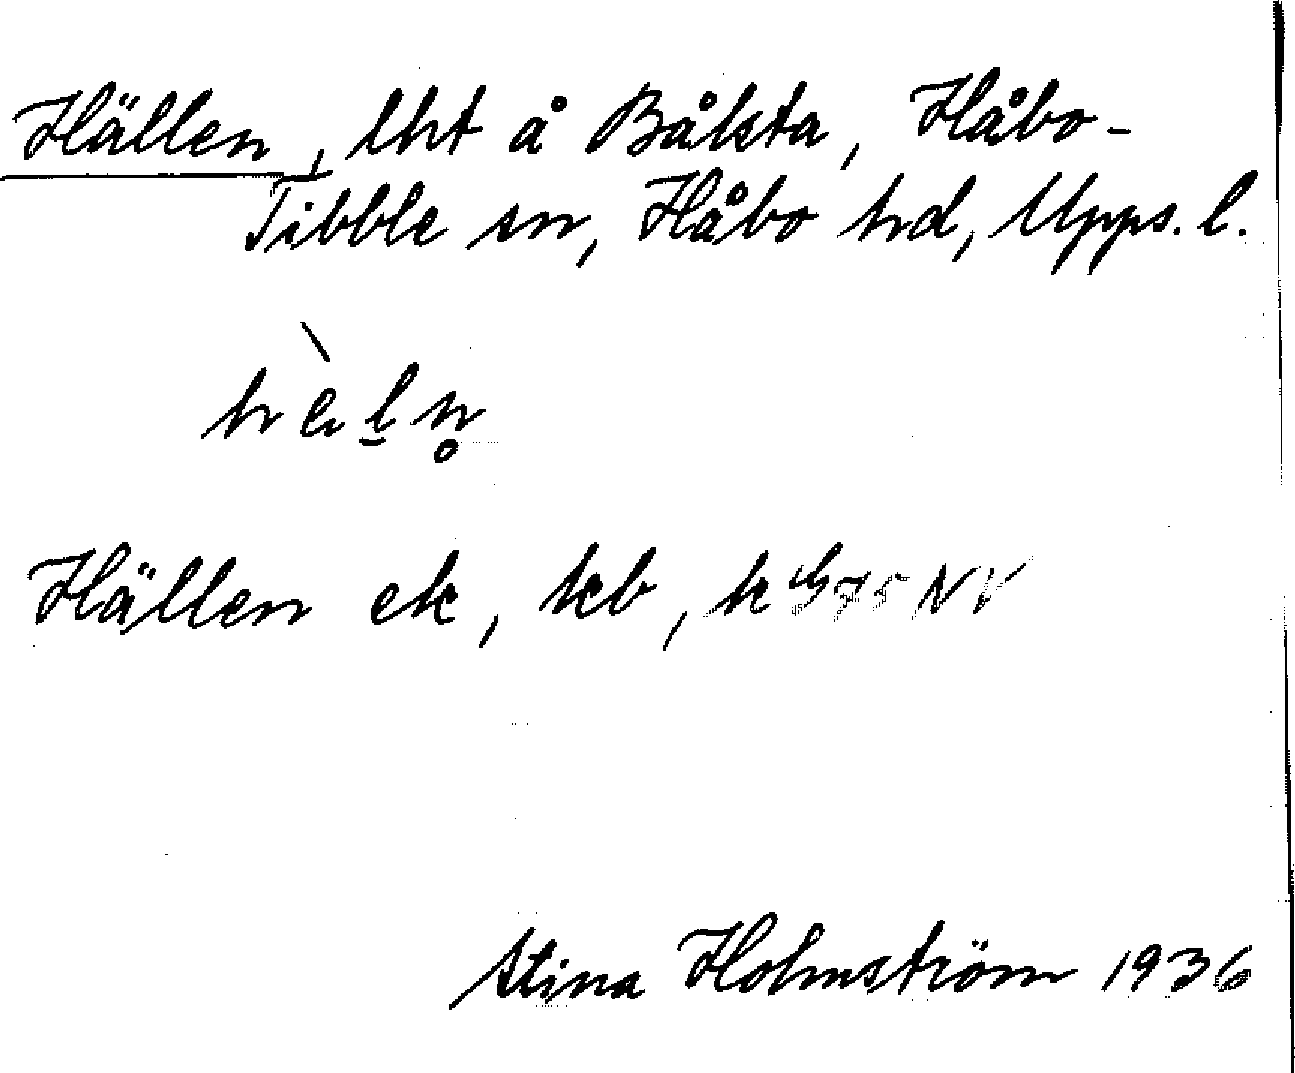 Hällen, lht å Bålsta, Håbo-
Tibble sn, Håbo hd, Upps. l.
hèln̥
Hällen ek, kb, k 75 NV
Stina Holmström 1936